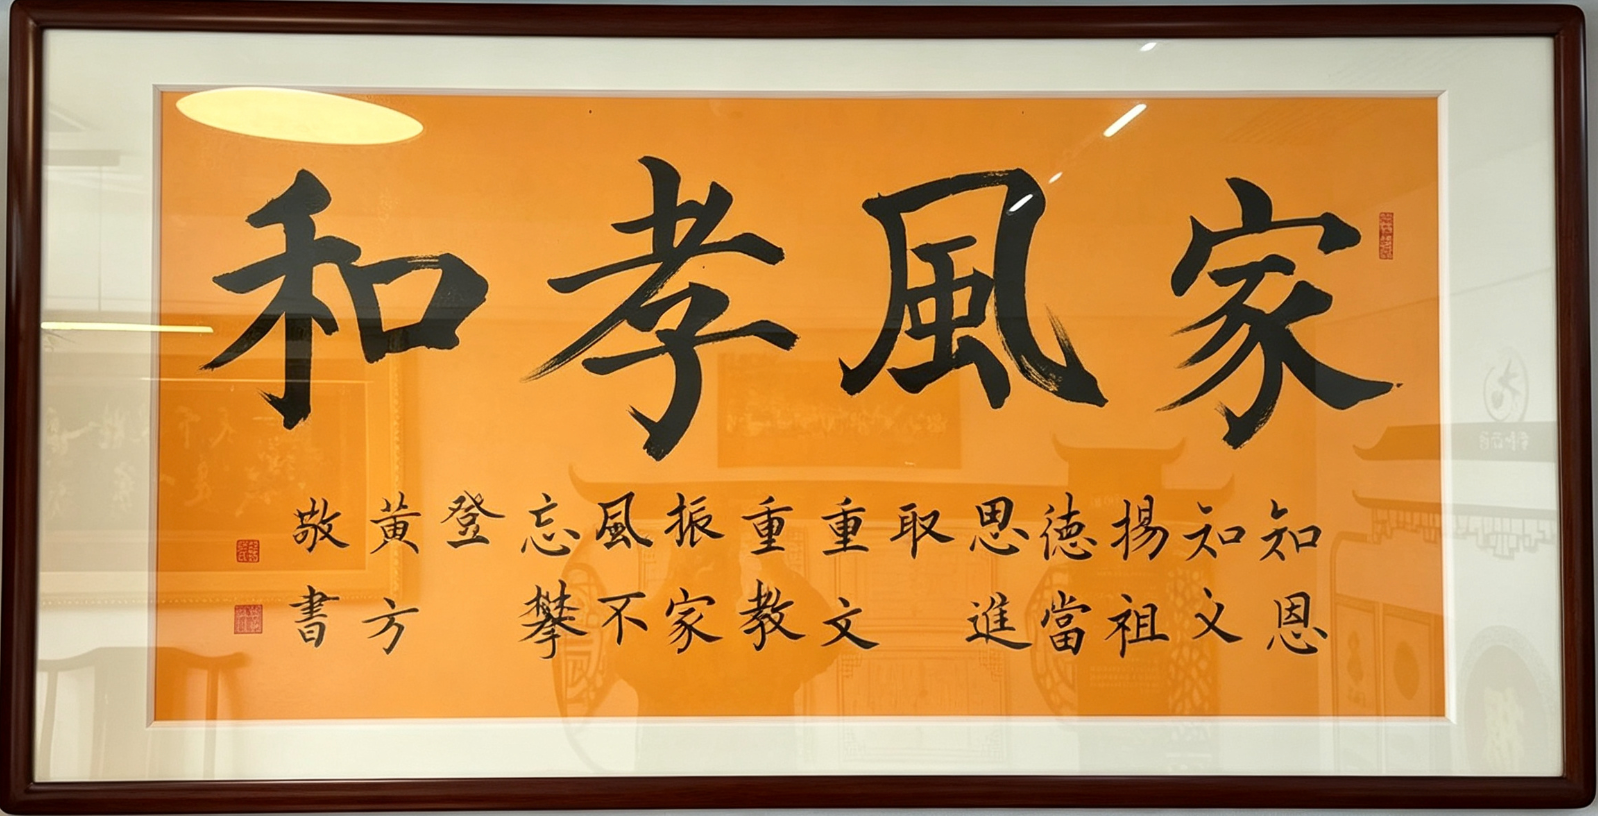 家風孝和
知恩
知文
揚祖
德當
思進
取
重文
重教
振家
風不
忘攀
登
黃方
敬書